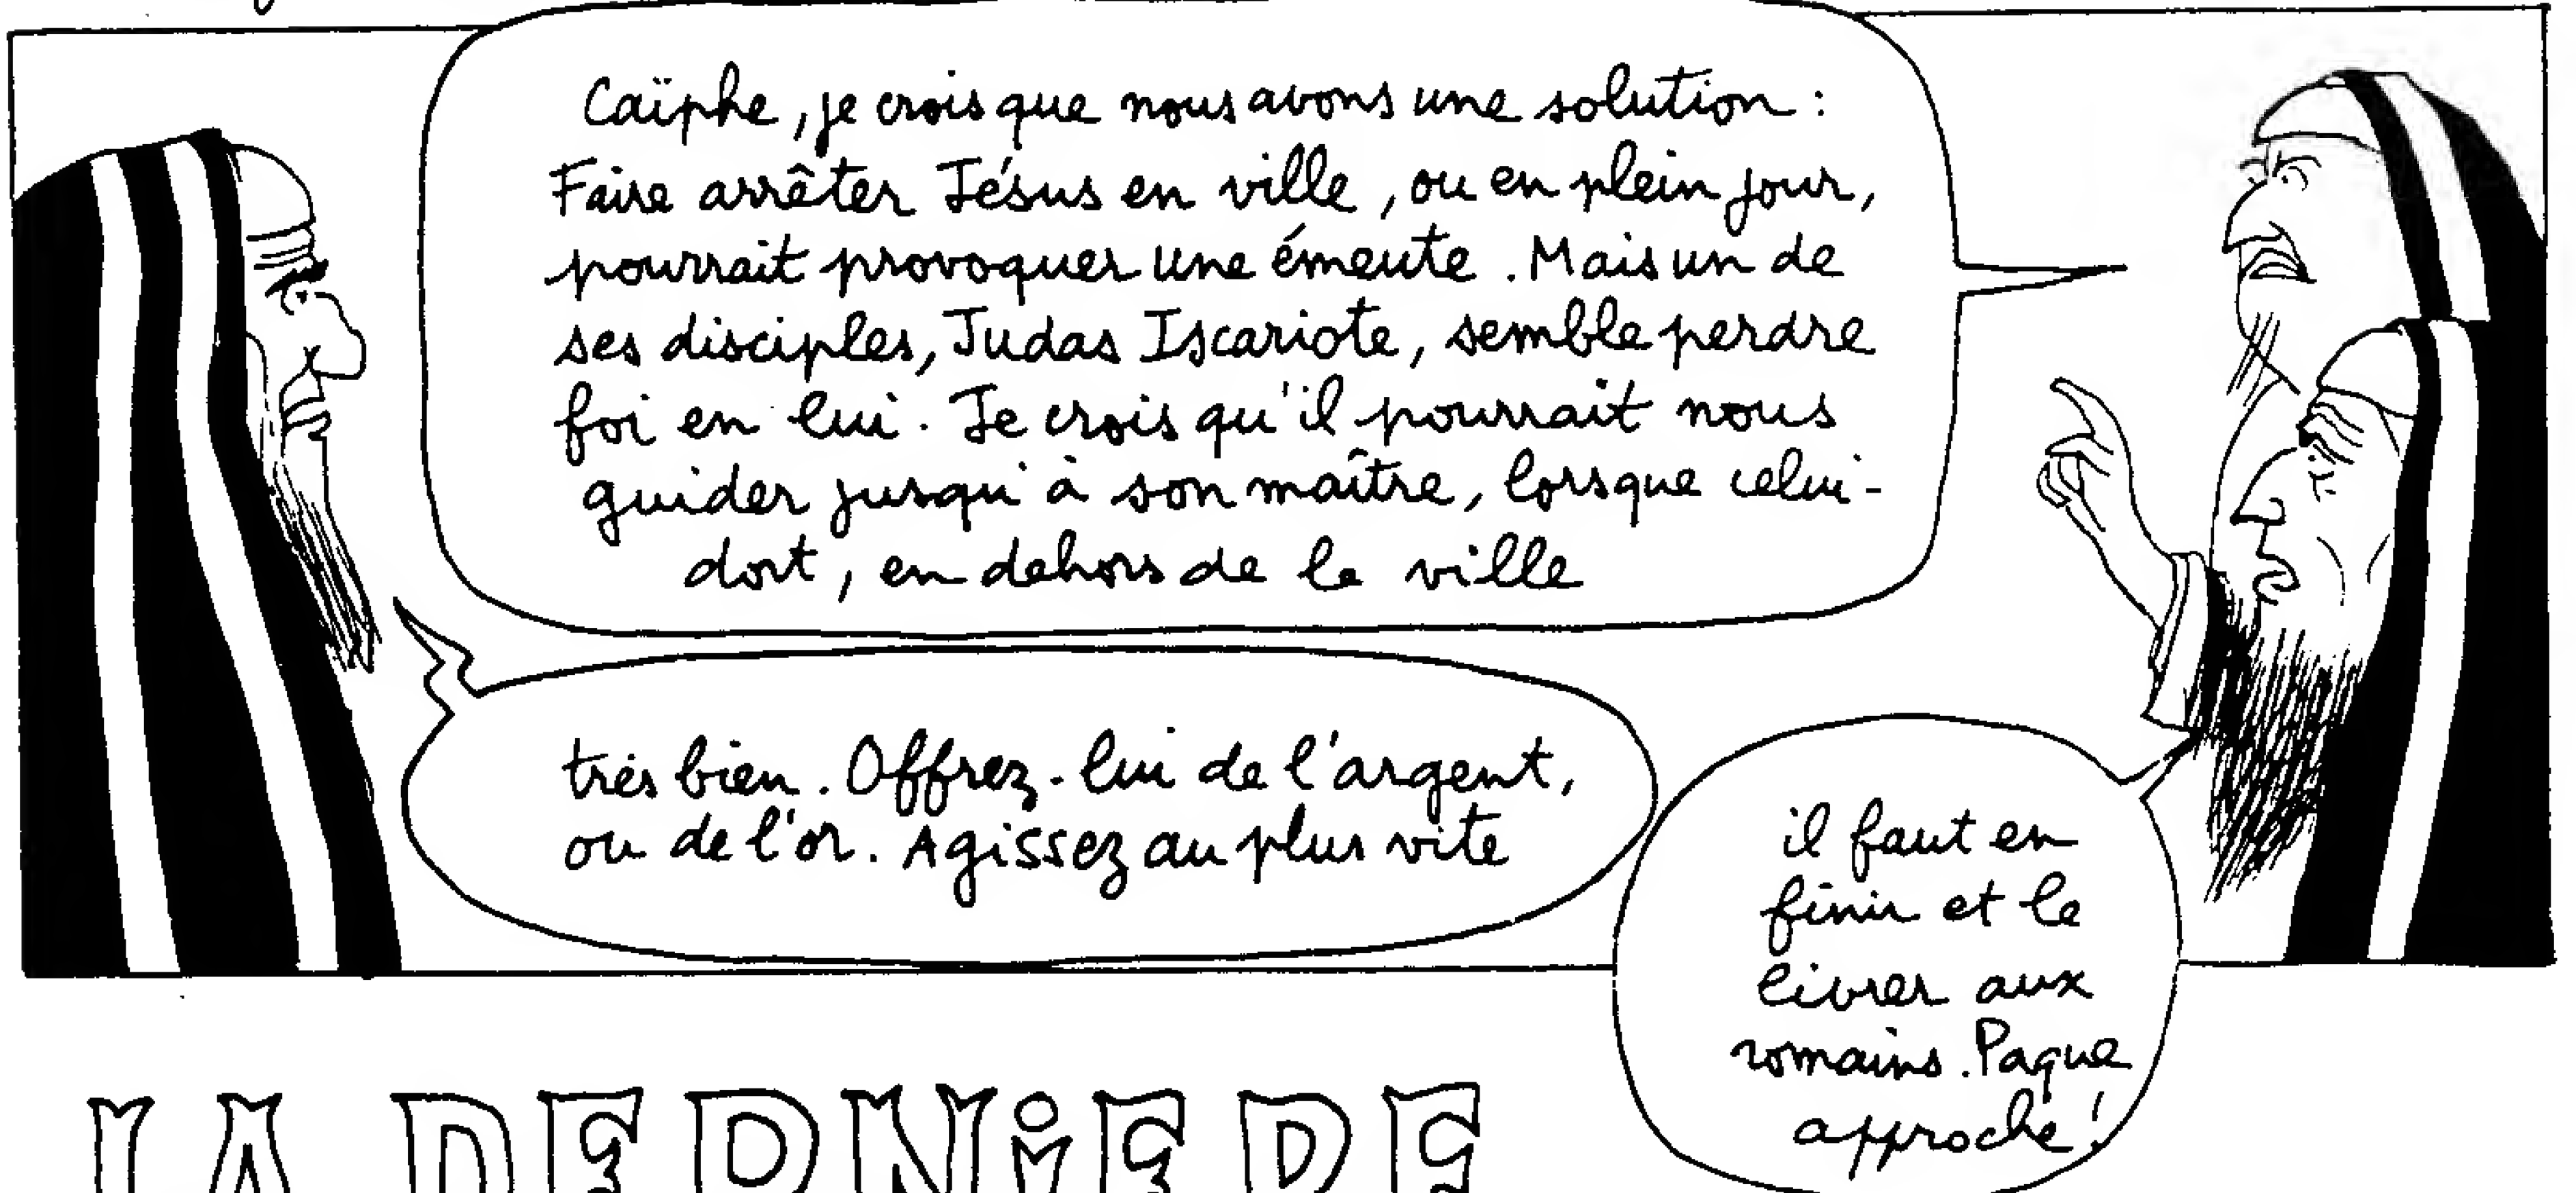 Caïphe, je crois que nous avons une solution :
Faire arrêter Jésus en ville, ou en plein jour,
pourrait provoquer une émeute. Mais un de
ses disciples, Judas Iscariote, semble perdre
foi en lui. Je crois qu'il pourrait nous
guider jusqu'à son maître, lorsque celui-
dort, en dehors de la ville
très bien. Offrez-lui de l'argent,
ou de l'or. Agissez au plus vite
il faut en
finir et le
livrer aux
romains. Paque
approche !
LA DERNiERE